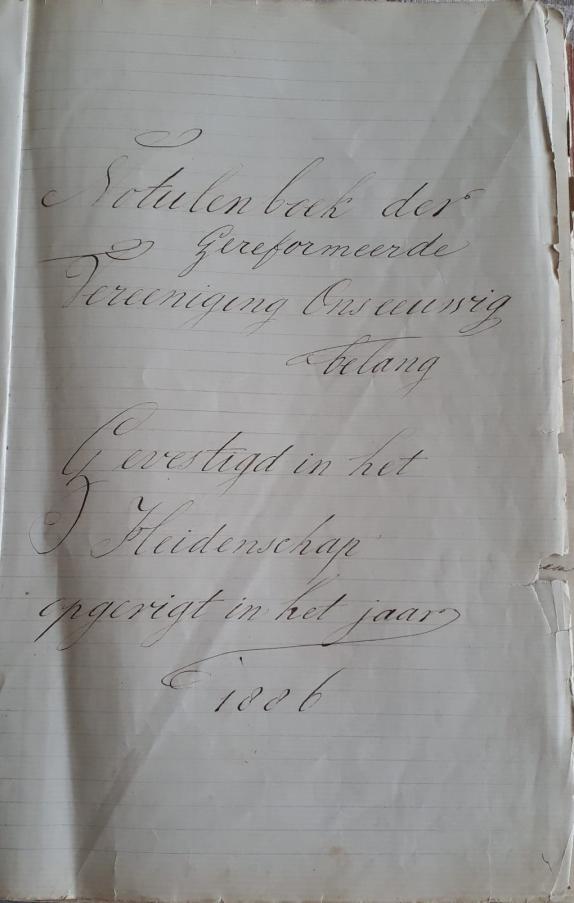 Notulenboek der
Gereformeerde
Vereeniging Ons eeuwig
belang
Gevestigd in het
Heidenschap
opgerigt in het jaar
1886